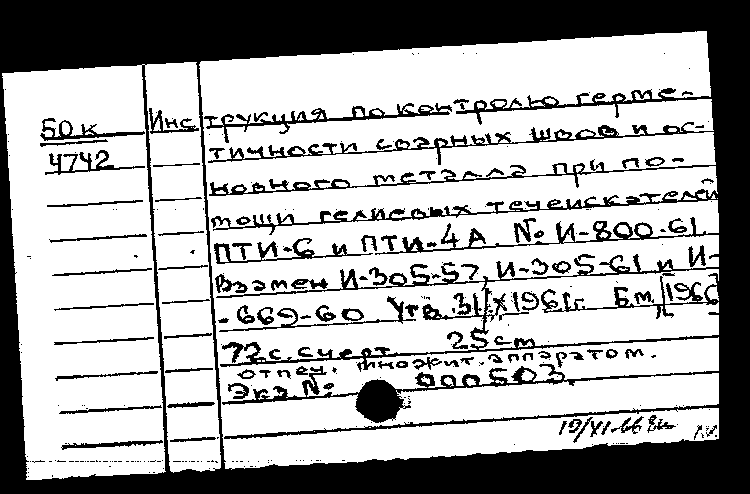 50к Инструкция по контролю герме-
4742 тичности сварных швов и ос-
новного металла при по-
мощи гелиевых течеискателей
ПТИ-6 и ПТИ-4А. № И-800-61.
Взамен И-305-57, И-305-61 и И-
-669-60 Утв. 31/X 1961г. Б.м., 1966
72с. с черт. 25см
отпеч. множит. аппаратом.
Экз. № 000503.
19/XI-66